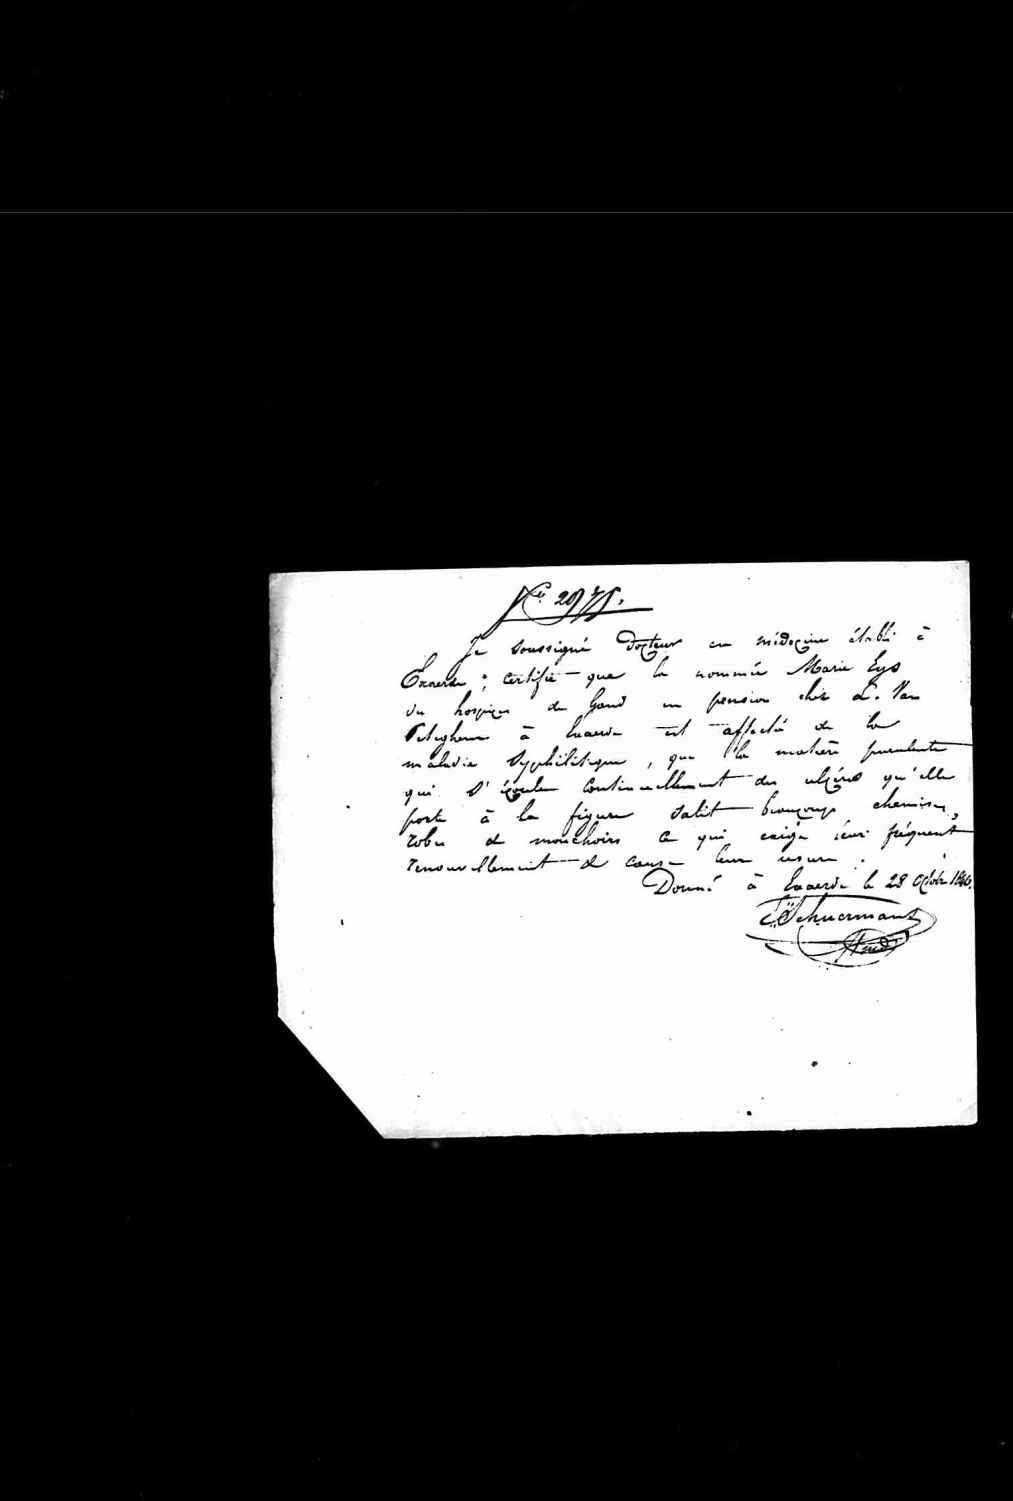 Je soussigné Docteur en médecine établi à
Exaerde, certifie que la nommée Marie Eys
du hospices de Gand en pension chez L. Van
Peteghem à Exaerde est affecté de la
maladie Syphilitique, que la matière purulente
qui s'écoule continuellement des ulcères qu'elle
porte à la figure salit beaucoup chemises,
robes et mouchoirs ce qui exige leur fréquent
renouvellement et cause leur usure.
Donné à Exaerde le 28 Octobre 1846.
Schuermans